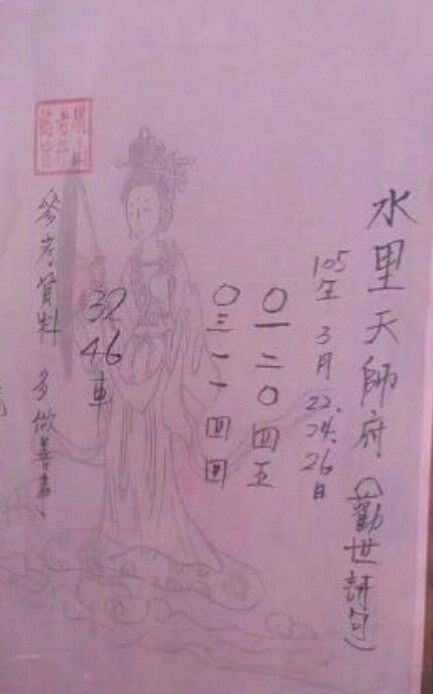 水里天師府(勸世詩句)
105年3月22.24.26日
〇一二〇四五
〇三一一四四
32
46
車
參考資料 多做善事